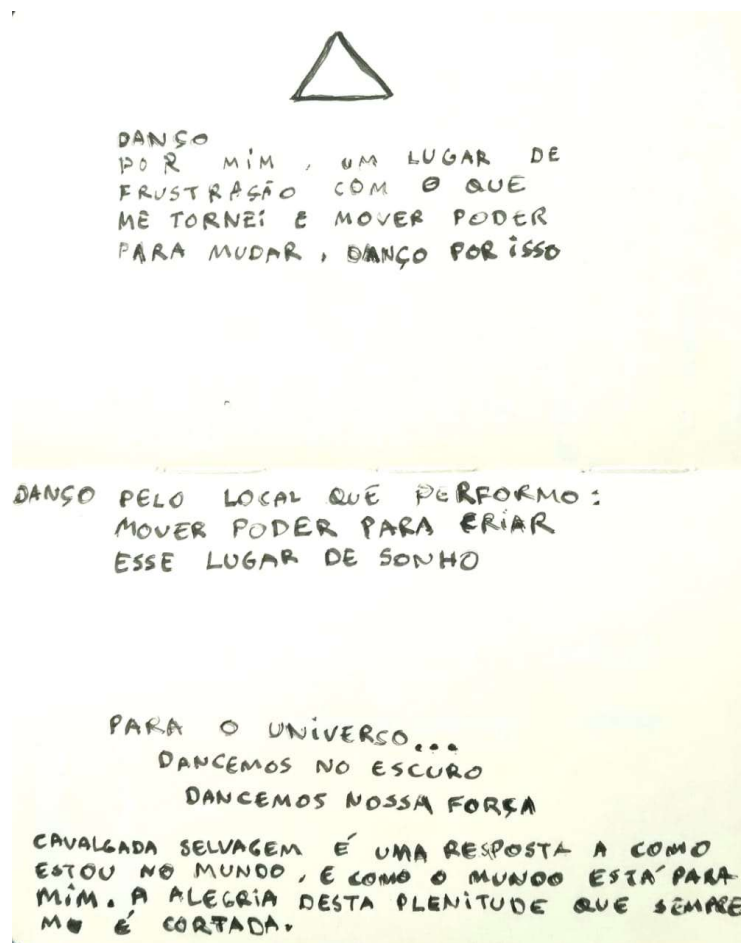 DANÇO
POR MIM, UM LUGAR DE
FRUSTRAÇÃO COM O QUE
ME TORNEI E MOVER PODER
PARA MUDAR, DANÇO POR ISSO
DANÇO PELO LOCAL QUE PERFORMO:
MOVER PODER PARA CRIAR
ESSE LUGAR DE SONHO
PARA O UNIVERSO...
DANCEMOS NO ESCURO
DANCEMOS NOSSA FORÇA
CAVALGADA SELVAGEM É UMA RESPOSTA A COMO
ESTOU NO MUNDO, E COMO O MUNDO ESTÁ PARA
MIM. A ALEGRIA DESTA PLENITUDE QUE SEMPRE
ME É CORTADA.